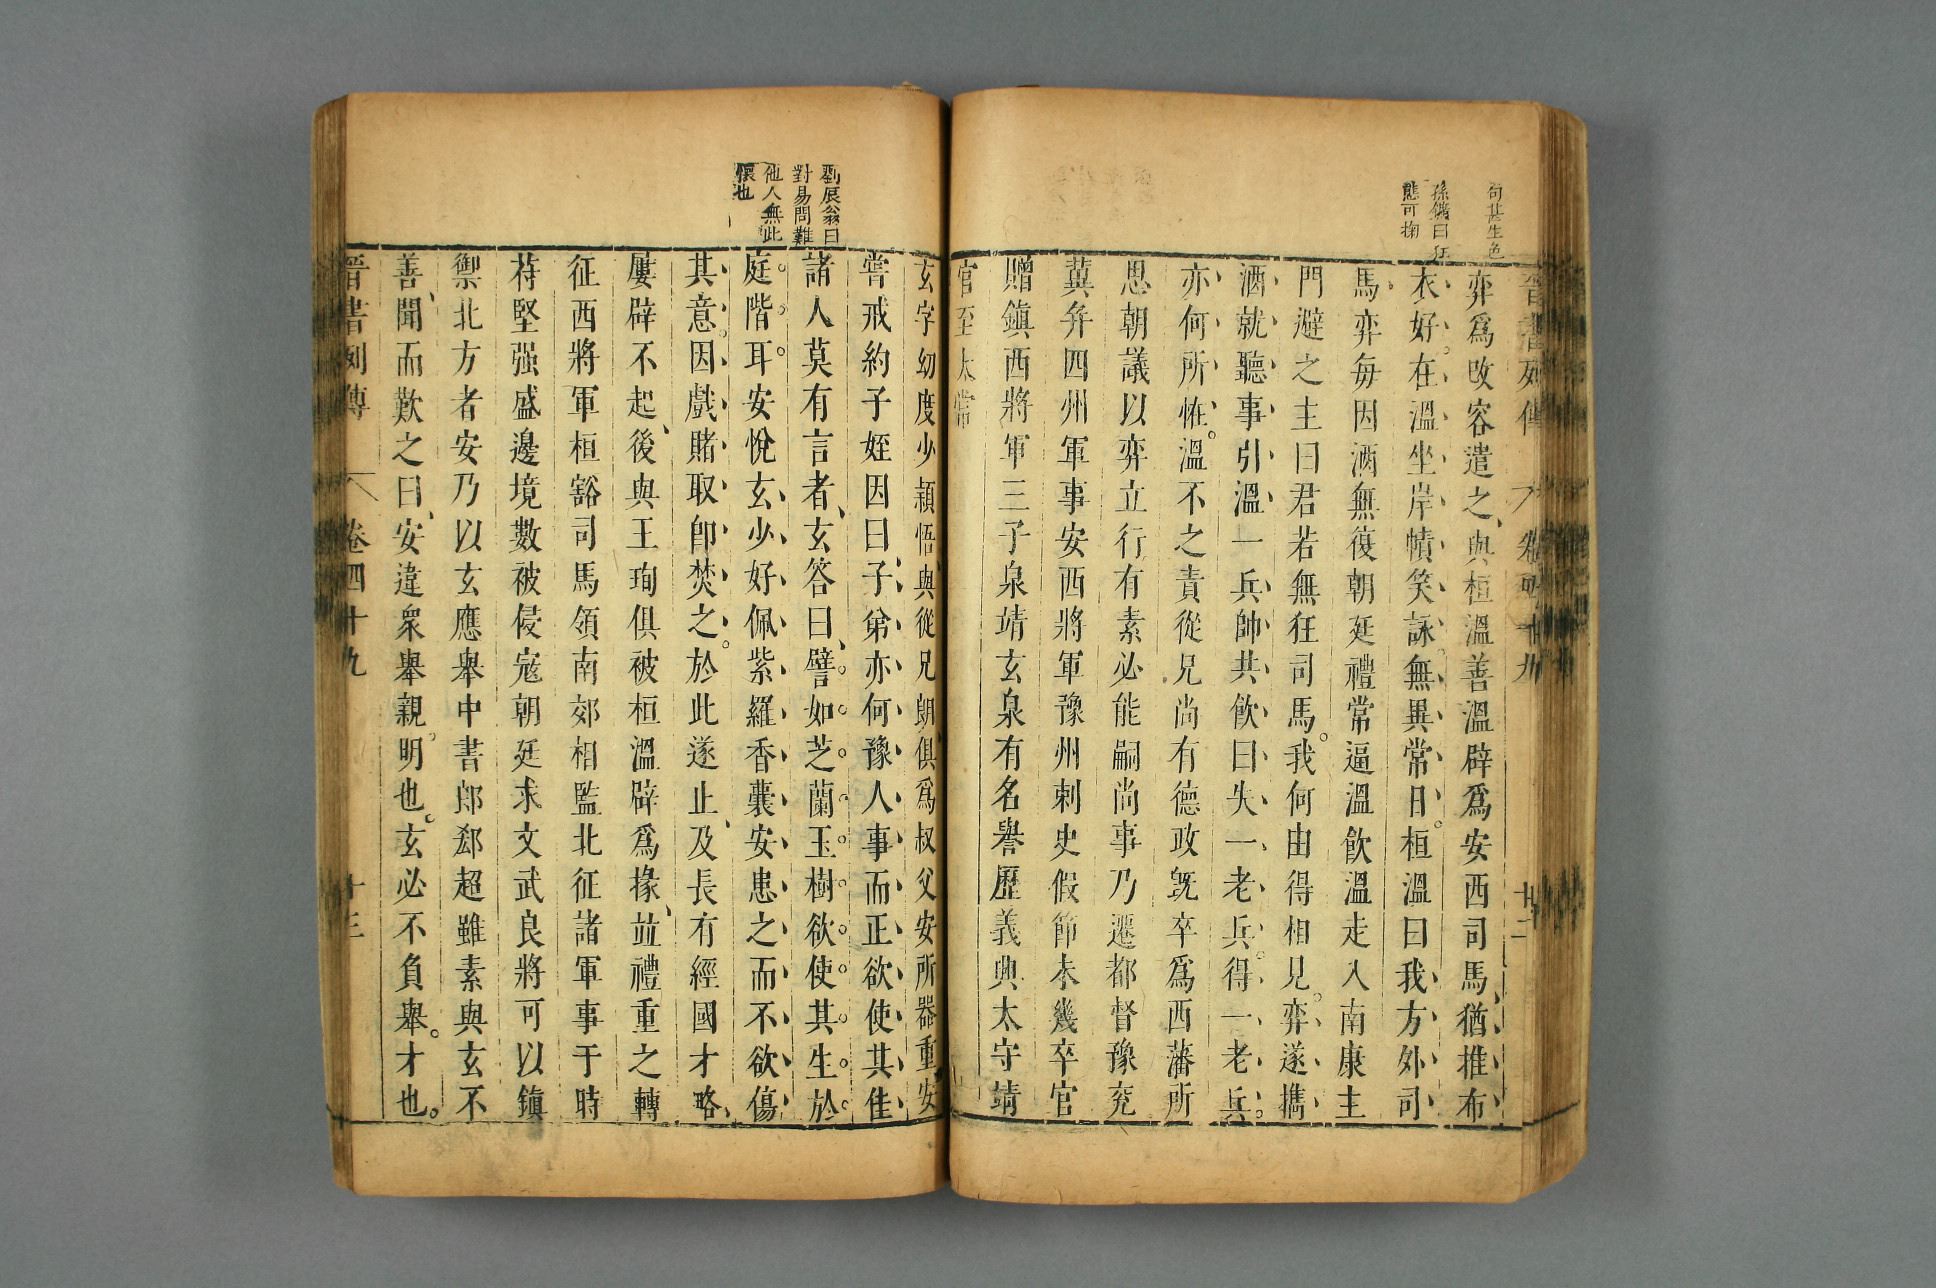 句甚生色
孫鑛曰狂
態可掬
晉書列傳 卷四十九 十二
弈爲改容遣之與桓溫善溫辟爲安西司馬猶推布
衣好在溫坐岸幘笑詠無異常日桓溫曰我方外司
馬弈每因酒無復朝廷禮常逼溫飲溫走入南康主
門避之主曰君若無狂司馬我何由得相見弈遂攜
酒就聽事引溫一兵帥共飲曰失一老兵得一老兵
亦何所恠溫不之責從兄尚有德政旣卒爲西藩所
思朝議以弈立行有素必能嗣尚事乃遷都督豫兖
冀并四州軍事安西將軍豫州刺史假節未幾卒官
贈鎮西將軍三子泉靖玄泉有名譽歷義興太守靖
官至太常
劉辰翁曰
對易問難
他人無此
懷也
玄字幼度少穎悟與從兄朗俱爲叔父安所器重安
嘗戒約子姪因曰子弟亦何豫人事而正欲使其佳
諸人莫有言者玄答曰譬如芝蘭玉樹欲使其生於
庭階耳安悅玄少好佩紫羅香囊安患之而不欲傷
其意因戲賭取卽焚之於此遂止及長有經國才略
屢辟不起後與王珣俱被桓溫辟爲掾並禮重之轉
征西將軍桓豁司馬領南郊相監北征諸軍事于時
苻堅强盛邊境數被侵寇朝廷求文武良將可以鎮
禦北方者安乃以玄應舉中書郎郄超雖素與玄不
善聞而歎之曰安違衆舉親明也玄必不負舉才也
晉書列傳 卷四十九 十三